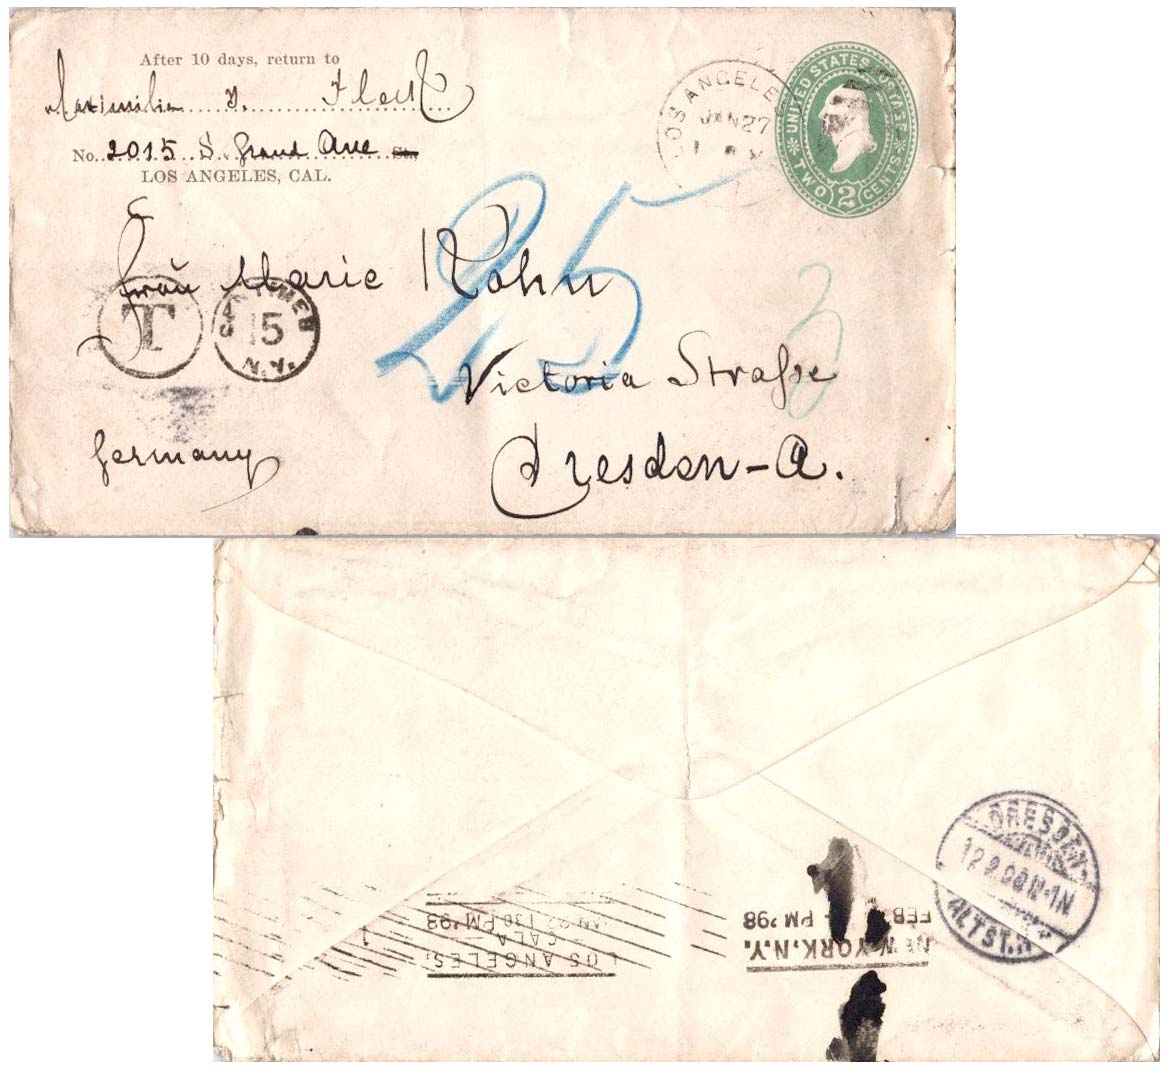 After 10 days, return to
No. 2015 S. Grand Ave St.
LOS ANGELES, CAL.
LOS ANGELES
JAN 27
UNITED STATES POSTAGE
TWO 2 CENTS
25
Frau Marie Kohn
T
CENTIMES
15
N.Y.
3
Victoria Straße
Germany
Dresden-A.
LOS ANGELES,
CALA
JAN 27 130 PM '98
1
NEW YORK, N.Y.
FEB
PM '98
DRESDEN
12-1N
ALTST.